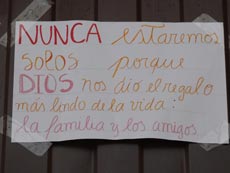 NUNCA estaremos
SOLOS porque
DIOS nos dió el regalo
más lindo de la vida:
la familia y los amigos